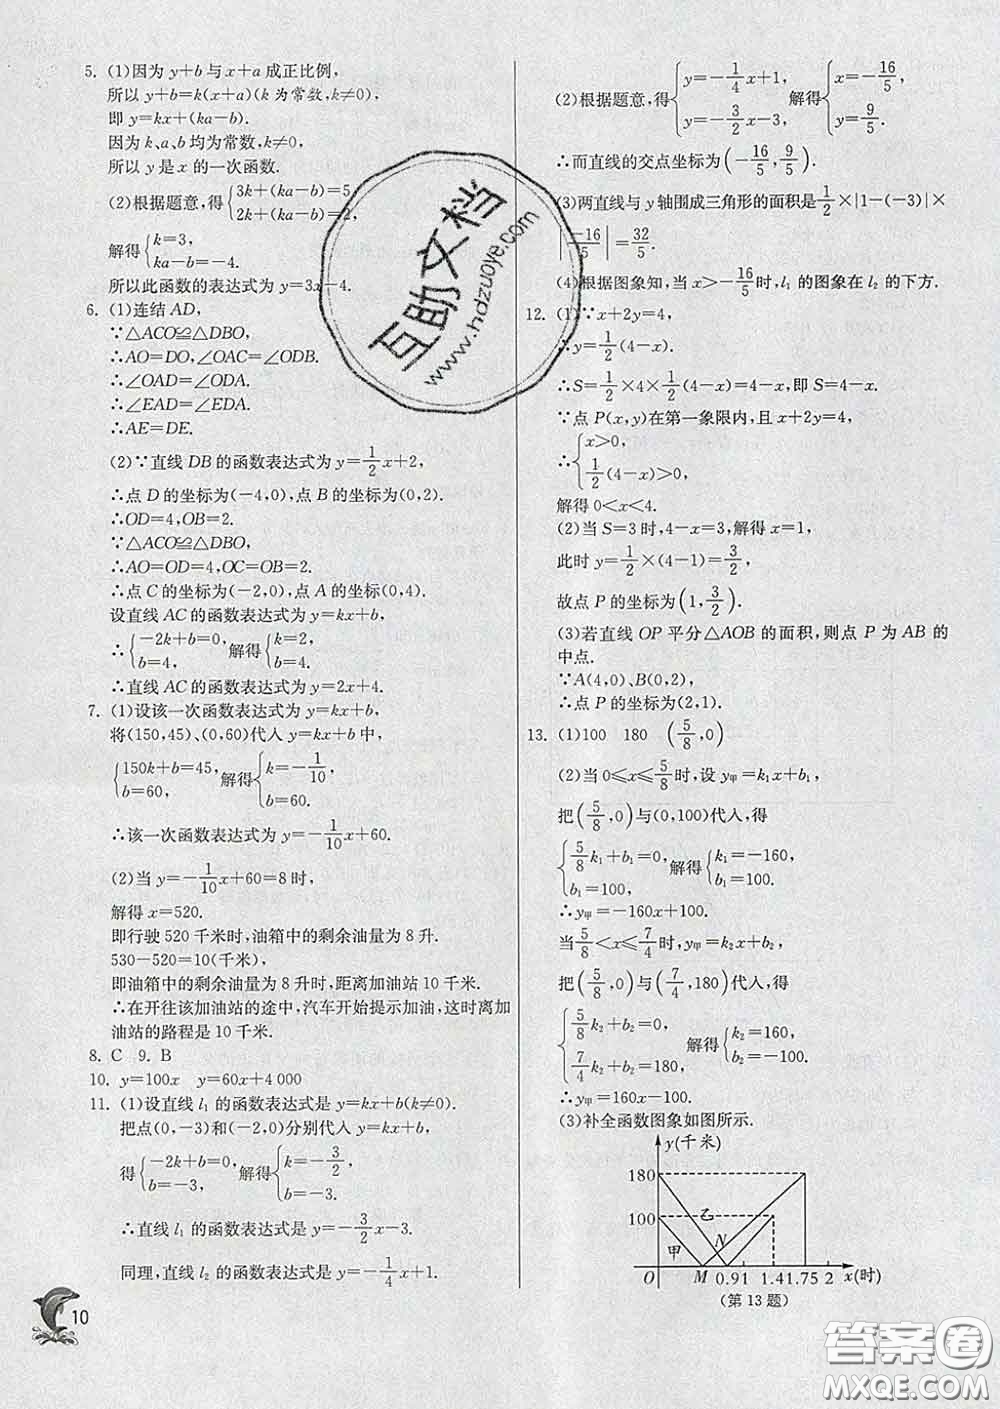 5. (1)因为 y+b 与 x+a 成正比例,
所以 y+b=k(x+a)(k 为常数,k≠0),
即 y=kx+(ka-b).
因为 k、a、b 均为常数,k≠0,
所以 y 是 x 的一次函数.
(2)根据题意,得{3k+(ka-b)=5, 2k+(ka-b)=2,
解得{k=3, ka-b=-4.
所以此函数的表达式为 y=3x-4.
6. (1)连结 AD,
∵△ACO≌△DBO,
∴AO=DO,∠OAC=∠ODB.
∴∠OAD=∠ODA.
∴∠EAD=∠EDA.
∴AE=DE.
(2)∵直线 DB 的函数表达式为 y=1/2x+2,
∴点 D 的坐标为(-4,0),点 B 的坐标为(0,2).
∴OD=4,OB=2.
∵△ACO≌△DBO,
∴AO=OD=4,OC=OB=2.
∴点 C 的坐标为(-2,0),点 A 的坐标为(0,4).
设直线 AC 的函数表达式为 y=kx+b,
∴{-2k+b=0, b=4, 解得{k=2, b=4.
∴直线 AC 的函数表达式为 y=2x+4.
7. (1)设该一次函数表达式为 y=kx+b,
将(150,45)、(0,60)代入 y=kx+b 中,
{150k+b=45, b=60, 解得{k=-1/10, b=60.
∴该一次函数表达式为 y=-1/10x+60.
(2)当 y=-1/10x+60=8 时,
解得 x=520.
即行驶 520 千米时,油箱中的剩余油量为 8 升.
530-520=10(千米),
即油箱中的剩余油量为 8 升时,距离加油站 10 千米.
∴在开往该加油站的途中,汽车开始提示加油,这时离加
油站的路程是 10 千米.
8. C 9. B
10. y=100x y=60x+4 000
11. (1)设直线 l₁ 的函数表达式是 y=kx+b(k≠0).
把点(0,-3)和(-2,0)分别代入 y=kx+b,
得{-2k+b=0, b=-3, 解得{k=-3/2, b=-3.
∴直线 l₁ 的函数表达式是 y=-3/2x-3.
同理,直线 l₂ 的函数表达式是 y=-1/4x+1.
10
(2)根据题意,得{y=-1/4x+1, y=-3/2x-3, 解得{x=-16/5, y=9/5.
∴而直线的交点坐标为(-16/5,9/5).
(3)两直线与 y 轴围成三角形的面积是1/2×|1-(-3)|×
|-16/5|=32/5.
(4)根据图象知,当 x>-16/5时,l₁ 的图象在 l₂ 的下方.
12. (1)∵x+2y=4,
∴y=1/2(4-x).
∴S=1/2×4×1/2(4-x)=4-x,即 S=4-x.
∵点 P(x,y)在第一象限内,且 x+2y=4,
∴{x>0, 1/2(4-x)>0,
解得 0<x<4.
(2)当 S=3 时,4-x=3,解得 x=1,
此时 y=1/2×(4-1)=3/2,
故点 P 的坐标为(1,3/2).
(3)若直线 OP 平分△AOB 的面积,则点 P 为 AB 的
中点.
∵A(4,0)、B(0,2),
∴点 P 的坐标为(2,1).
13. (1)100 180 (5/8,0)
(2)当 0≤x≤5/8时,设 y甲=k₁x+b₁,
把(5/8,0)与(0,100)代入,得
{5/8k₁+b₁=0, b₁=100, 解得{k₁=-160, b₁=100.
∴y甲=-160x+100.
当5/8<x≤7/4时,y甲=k₂x+b₂,
把(5/8,0)与(7/4,180)代入,得
{5/8k₂+b₂=0, 7/4k₂+b₂=180, 解得{k₂=160, b₂=-100.
∴y甲=160x-100.
(3)补全函数图象如图所示.
y(千米)
180
100
乙
甲
N
O M 0.91 1.41.75 2 x(时)
(第 13 题)
互助文档
www.hdzuoye.com
答案圈
MXQE.COM